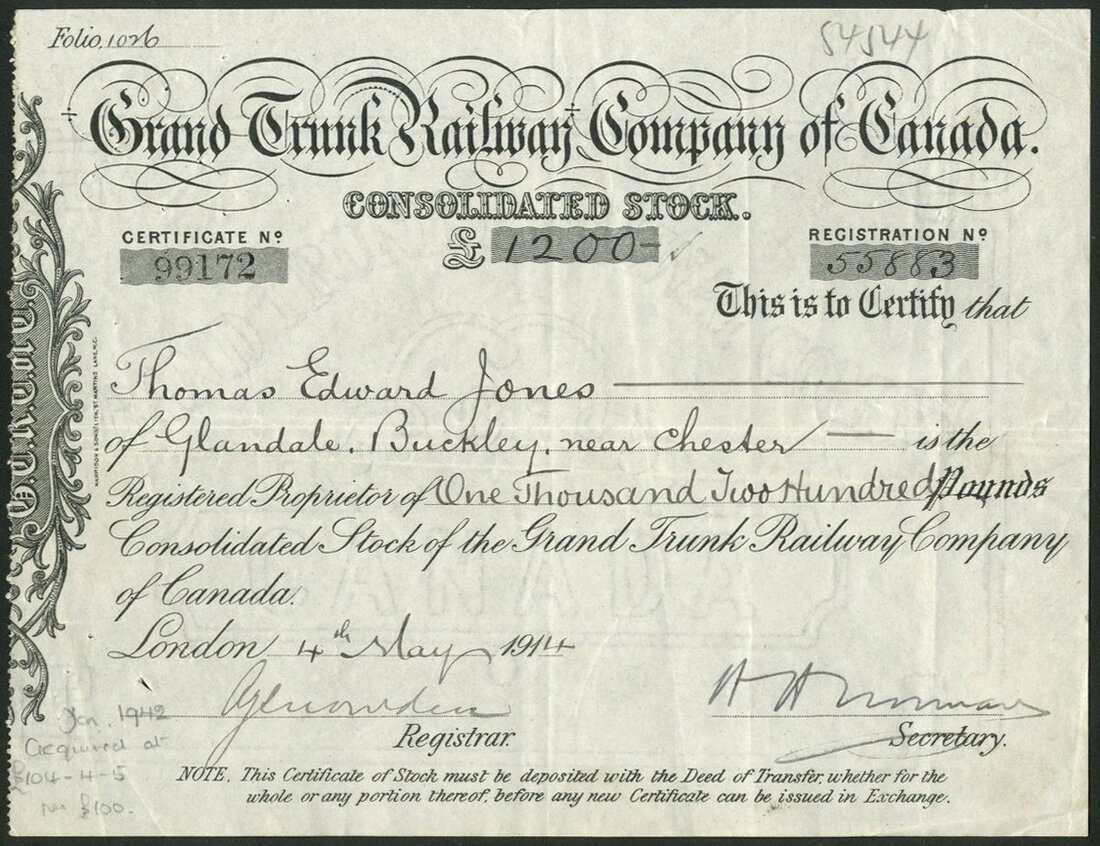 Folio, 1026
54544
Grand Trunk Railway Company of Canada.
CONSOLIDATED STOCK.
CERTIFICATE Nº
99172
£ 1200-
REGISTRATION Nº
55883
This is to Certify that
Thomas Edward Jones
of Glandale, Buckley, near Chester is the
Registered Proprietor of One Thousand Two Hundred Pounds
Consolidated Stock of the Grand Trunk Railway Company
of Canada.
London 4th May 1914
H H Norman
Registrar.
Secretary.
Jan. 1942
acquired at
£104-4-5
per £100.
NOTE. This Certificate of Stock must be deposited with the Deed of Transfer, whether for the
whole or any portion thereof, before any new Certificate can be issued in Exchange.